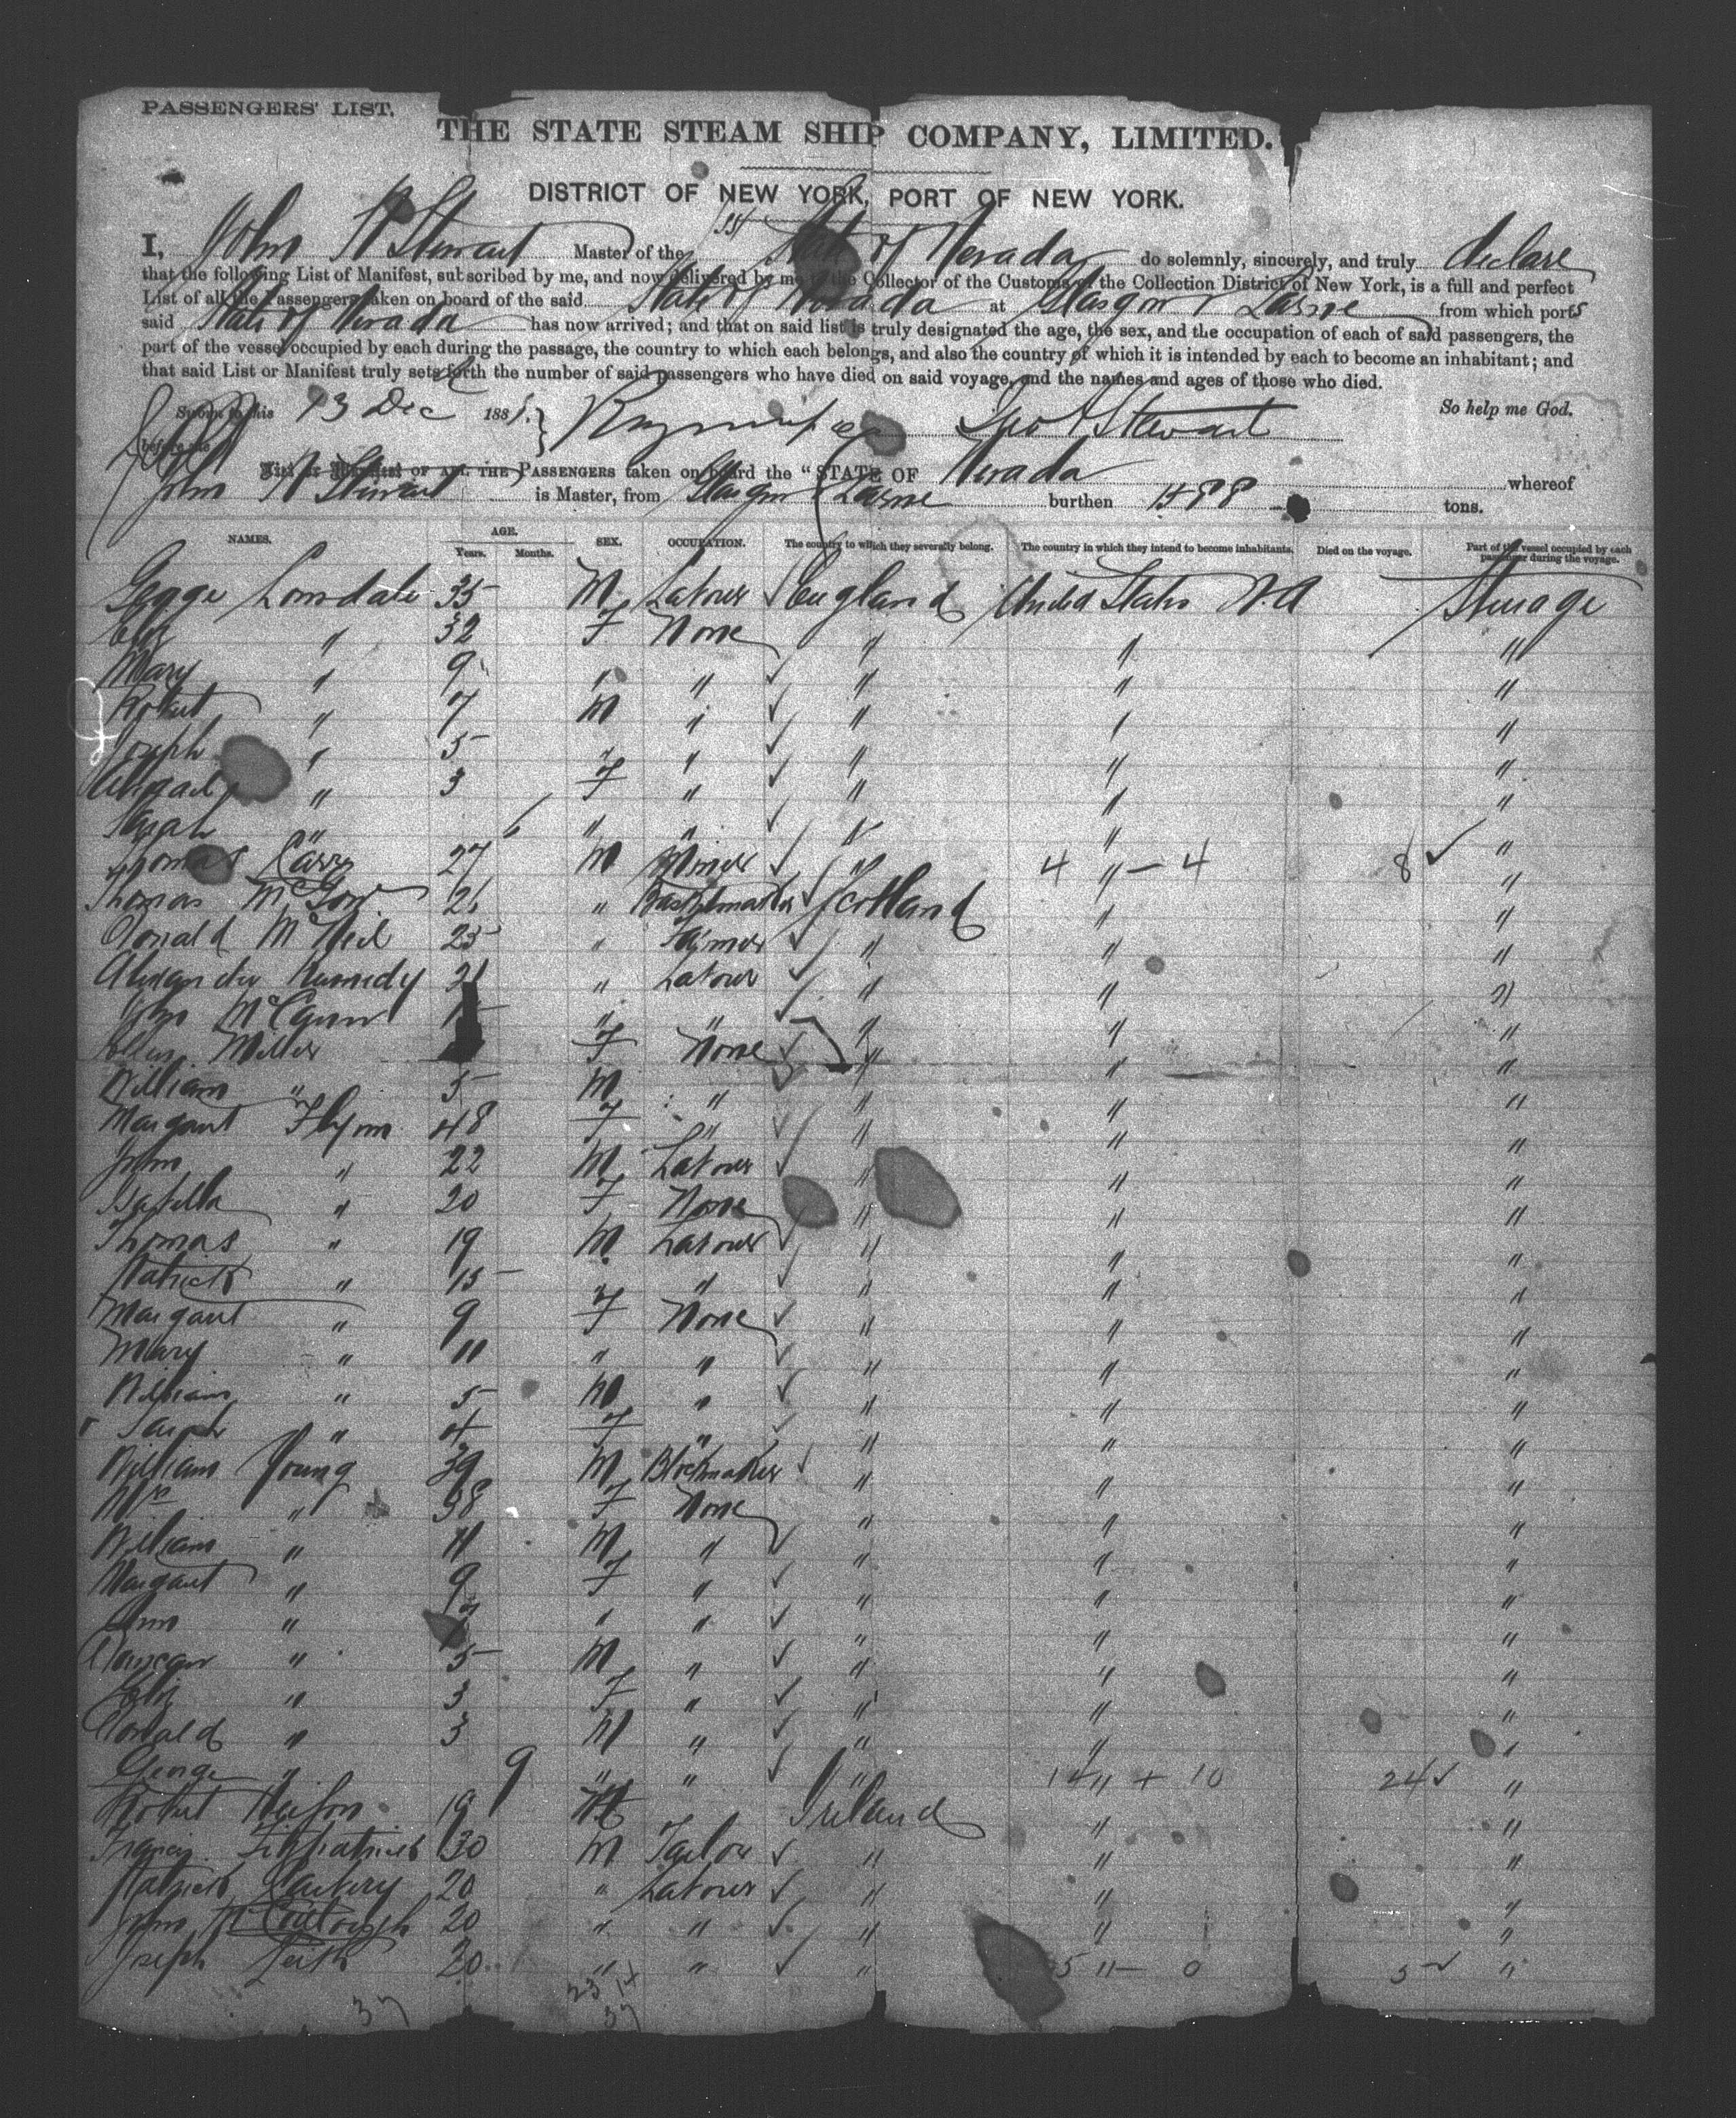 PASSENGERS' LIST.
THE STATE STEAM SHIP COMPANY, LIMITED.
DISTRICT OF NEW YORK, PORT OF NEW YORK.
I, John Stewart Master of the SS State of Nevada do solemnly, sincerely, and truly declare
that the following List of Manifest, subscribed by me, and now delivered by me to the Collector of the Customs of the Collection District of New York, is a full and perfect
List of all the Passengers taken on board of the said State of Nevada at Glasgow & Larne from which ports
said State of Nevada has now arrived; and that on said list is truly designated the age, the sex, and the occupation of each of said passengers, the
part of the vessel occupied by each during the passage, the country to which each belongs, and also the country of which it is intended by each to become an inhabitant; and
that said List or Manifest truly sets forth the number of said passengers who have died on said voyage, and the names and ages of those who died.
Sworn to this 13 Dec 1881. Jno Stewart So help me God.
before me
List or Manifest OF ALL THE PASSENGERS taken on board the "STATE OF Nevada whereof
John Stewart is Master, from Glasgow & Larne burthen 1488 tons.
NAMES. AGE. SEX. OCCUPATION. The country to which they severally belong. The country in which they intend to become inhabitants. Died on the voyage. Part of the vessel occupied by each passenger during the voyage.
Years. Months.
George Lonsdale 35 M Labourer England United States N.A Steerage
Eliz " 32 F None " " "
Mary " 9 " " " " "
Robert " 7 M " " " "
Joseph " 5 " " " "
Abigail " 3 F " " " "
Sarah " 6 " " " " "
Thomas 27 M Miner " 4 " - 4 8 "
Thomas McGow 26 " Scotland " "
Donald McNeil 25 " Farmer " " "
Alexander Kennedy 21 " Labourer " " "
John " " " " "
Miller F None " " "
William " 5 M " " " "
Margaret Flynn 48 F " " " "
John " 22 M Labourer " " "
Isabella " 20 F None " " "
Thomas " 19 M Labourer " " "
Patrick " 15 " " " "
Margaret " 9 F None " " "
Mary " 11 " " " " "
William " 5 M " " " "
Sarah " 4 F " " " "
William Young 39 M Blockmaker " " "
Mrs " 38 F None " " "
William " 11 M " " " "
Margaret " 9 F " " " "
Ann " 7 " " " " "
Duncan " 5 M " " " "
Eliz " 3 F " " " "
Donald " 3 M " " " "
George " 9 " " " 14 " + 10 24 "
Robert 19 M Ireland " "
Francis Fitzpatrick 30 M Tailor " " "
Patrick 20 " Labourer " " "
John McCullough 20 " " " " "
Joseph Leith 20 " " " 5 " - 0 5 "
37 23 14
37